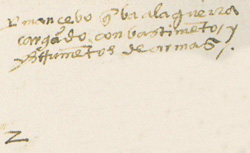 Vn mancebo q̃ va ala guerra
cargado. con bastimẽto, y
ystrumẽtos de armas /.
2